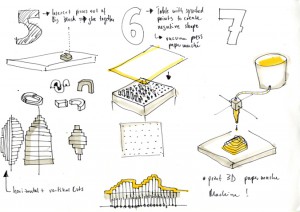 5
→ Lasercut pieces out of
Big block + glue together
6
→ Table with sprinkled
points to create
negative shape
→ vacuum press
papermaché
7
horizontal + vertical Cuts
• print 3D paper mache
Machine !